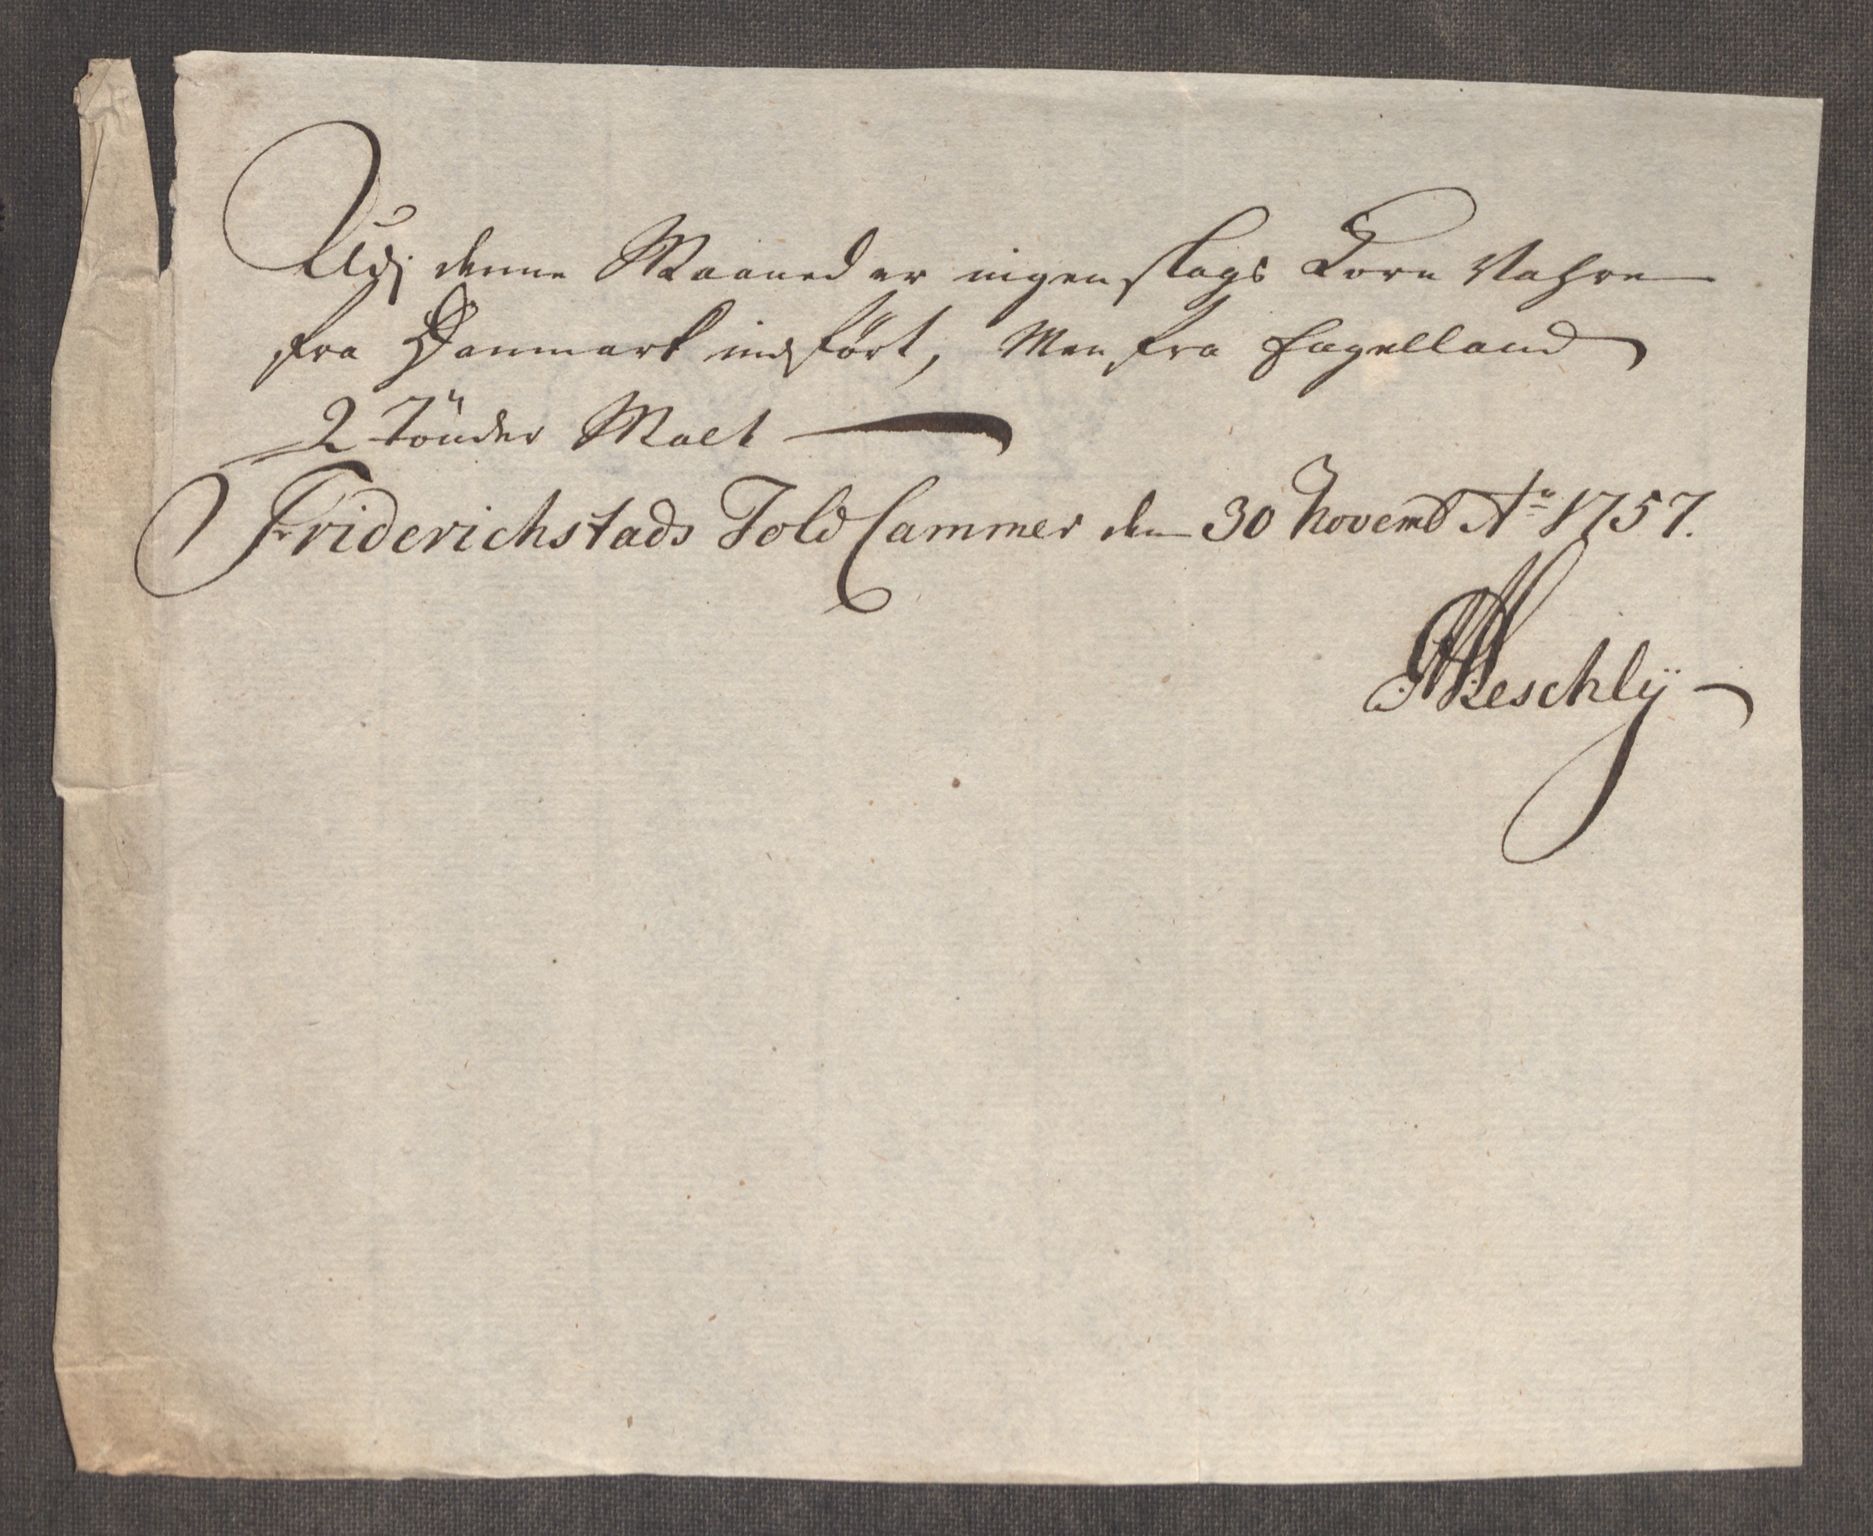 Udj denne Maaned er ingen slags Korn Vahre
fra Danmark indført, Men fra Engelland
2 Tönder Malt
Friderichstads Told Cammer den 30 Novemb Ao 1757.